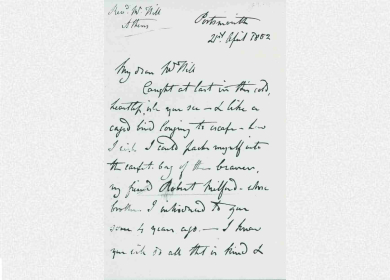 Revd. Mr. Hill
Athens
Portsmouth
21st April 1852
My dear Mr Hill
Caught at last in this cold,
you see — & like a
caged bird longing to escape —
I wish I could pack myself into
the carpet bag of the bearer,
my friend Robert Milford - whose
brother I introduced to you
some 4 years ago. — I know
you will do all that is kind &